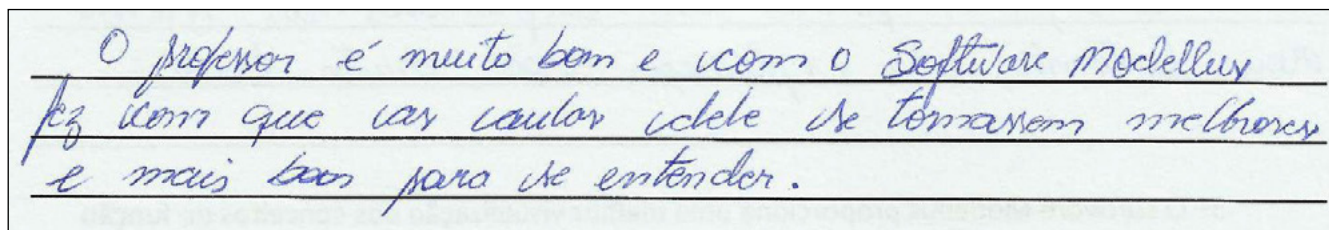 O professor é muito bom e com o Software Modellus
fez com que as aulas dele se tornassem melhores
e mais boas para se entender.